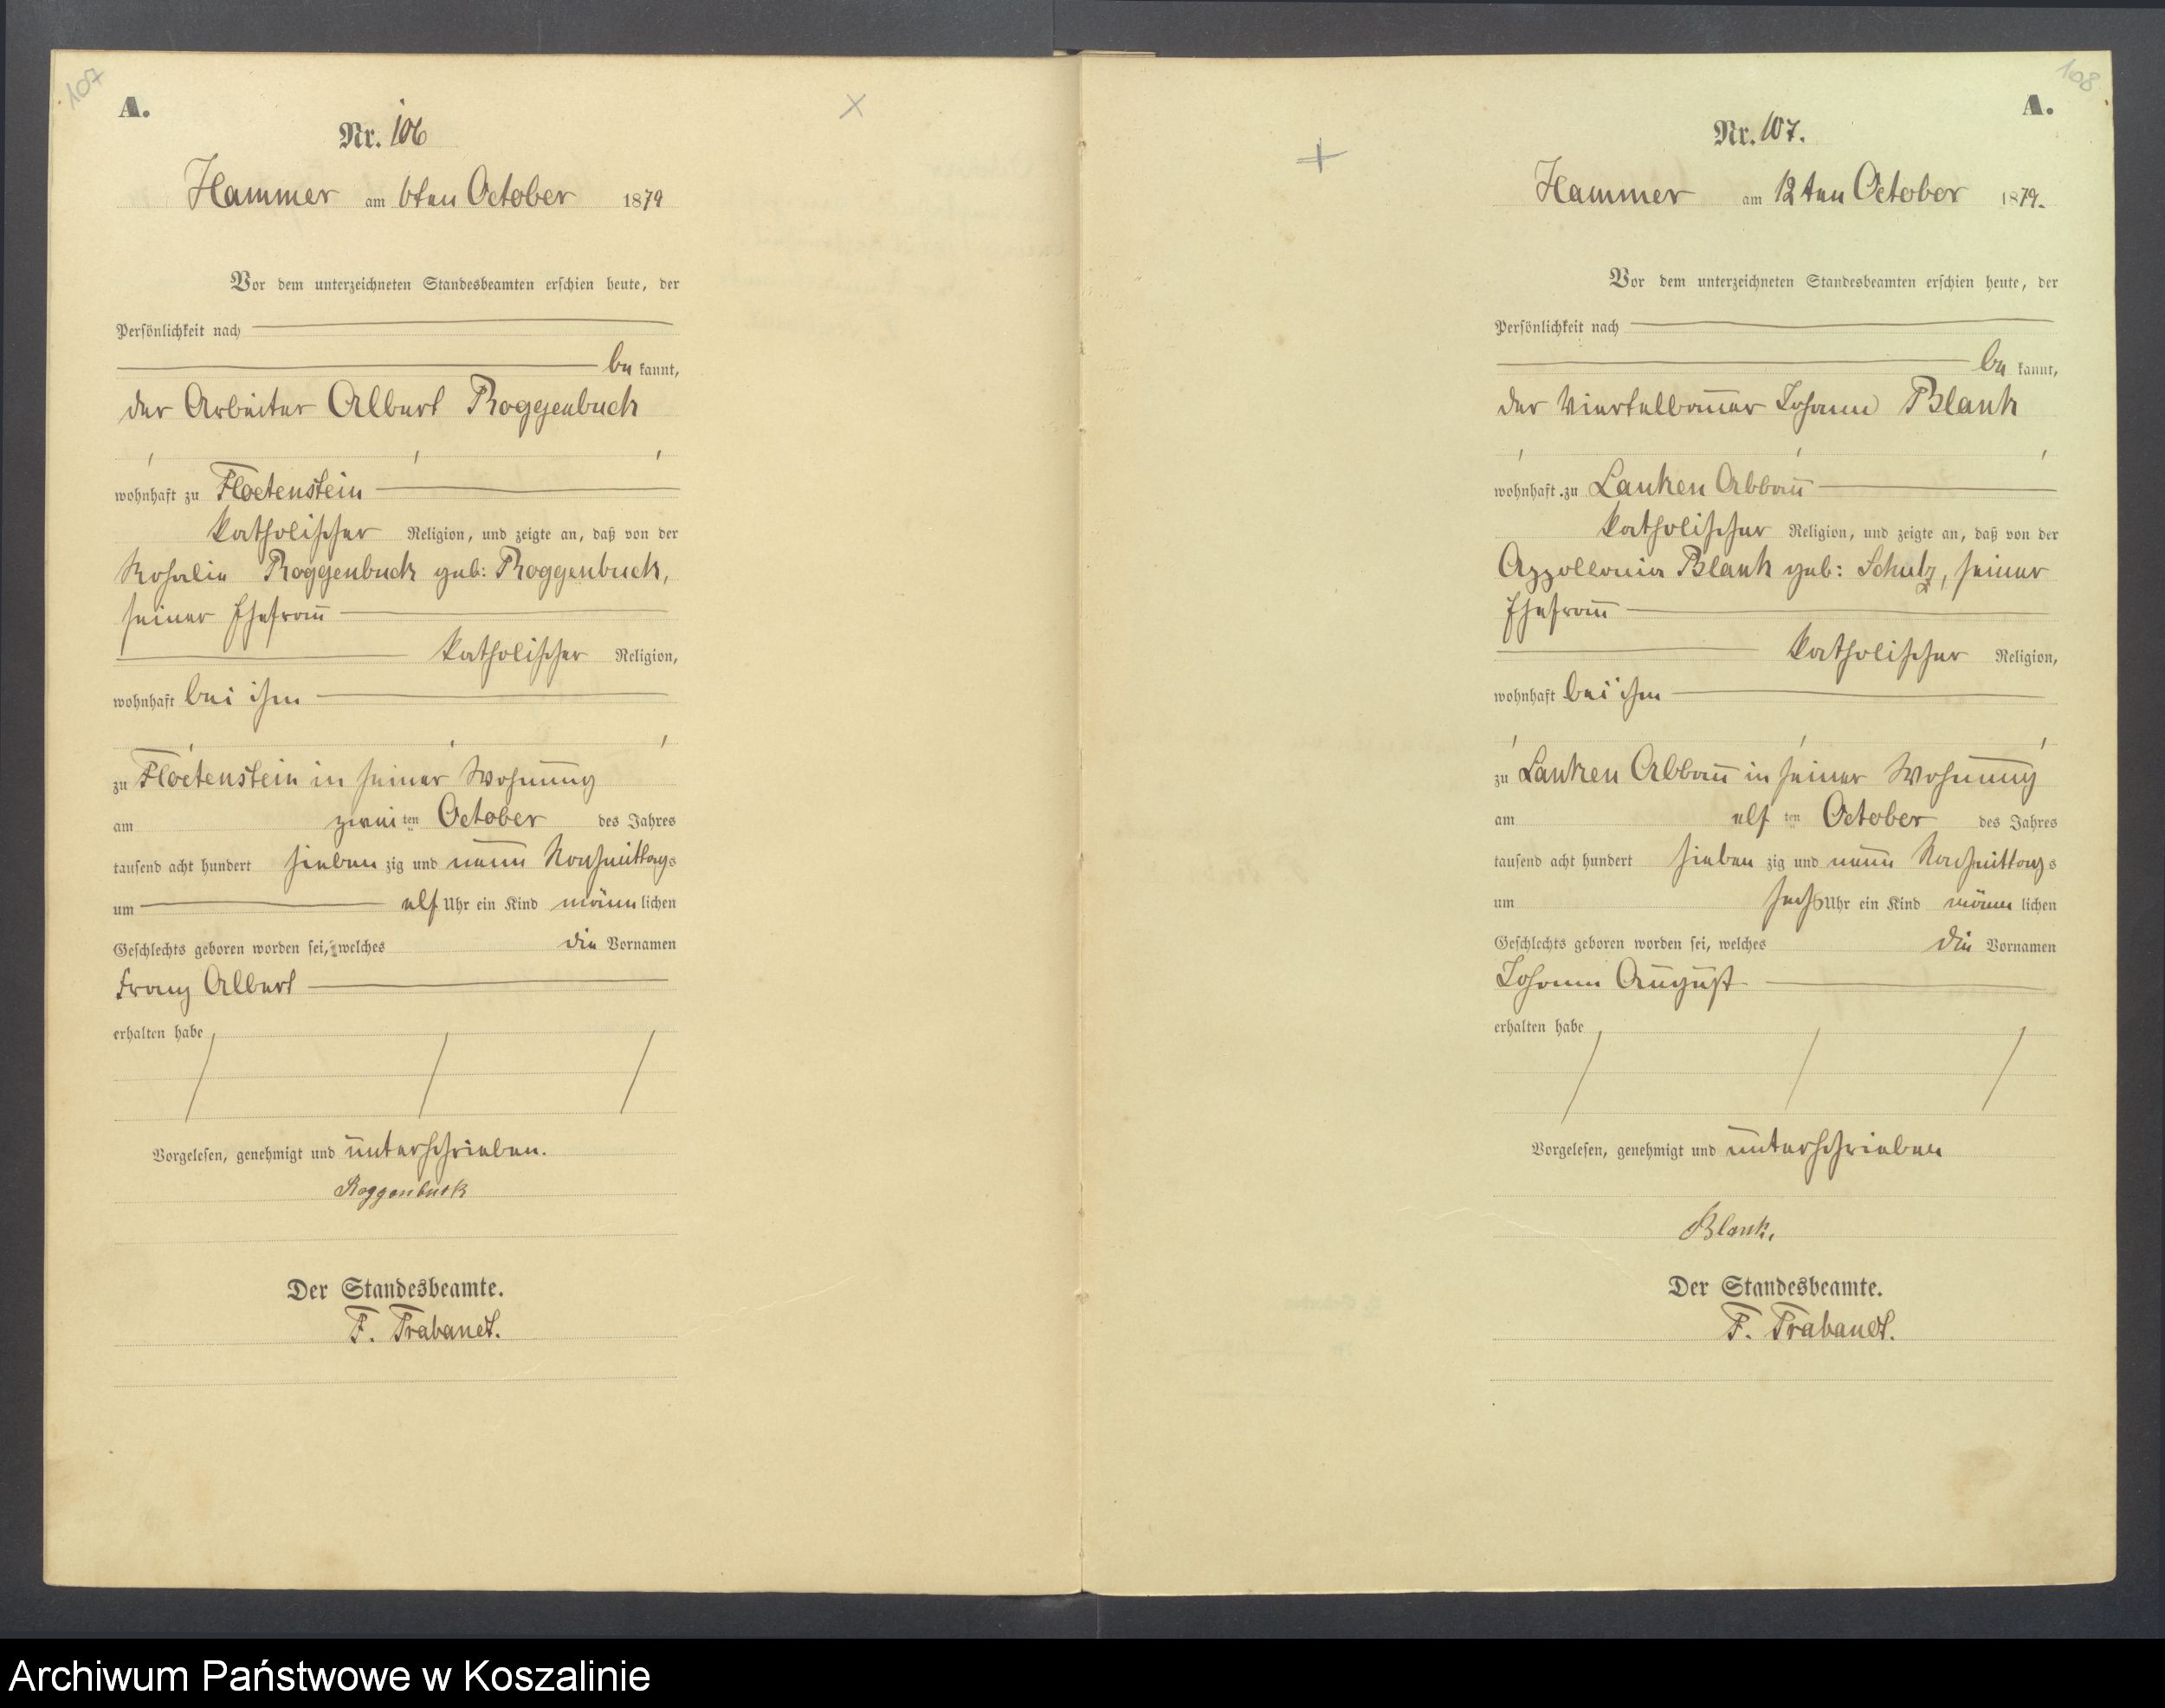 107
A.
Nr. 106
Hammer am 6ten October 1879
Vor dem unterzeichneten Standesbeamten erschien heute, der
Persönlichkeit nach
be kannt,
der Arbeiter Albert Roggenbuck
wohnhaft zu Floetenstein
katholischer Religion, und zeigte an, daß von der
Rosalie Roggenbuck geb: Roggenbuck,
seiner Ehefrau
katholischer Religion,
wohnhaft bei ihm
zu Floetenstein in seiner Wohnung
am zwei ten October des Jahres
tausend acht hundert sieben zig und neun Nachmittags
um elf Uhr ein Kind männlichen
Geschlechts geboren worden sei, welches die Vornamen
Franz Albert
erhalten habe
Vorgelesen, genehmigt und unterschrieben.
Roggenbuck
Der Standesbeamte.
F. Trabandt.
108
A.
Nr. 107.
Hammer am 12ten October 1879.
Vor dem unterzeichneten Standesbeamten erschien heute, der
Persönlichkeit nach
be kannt,
der Viertelbauer Johann Blank
wohnhaft zu Lanken Abbau
katholischer Religion, und zeigte an, daß von der
Appollonia Blank geb: Schulz, seiner
Ehefrau
katholischer Religion,
wohnhaft bei ihm
zu Lanken Abbau in seiner Wohnung
am elf ten October des Jahres
tausend acht hundert sieben zig und neun Nachmittags
um sechs Uhr ein Kind männ lichen
Geschlechts geboren worden sei, welches die Vornamen
Johann August
erhalten habe
Vorgelesen, genehmigt und unterschrieben
Blank.
Der Standesbeamte.
F. Trabandt.
Archiwum Państwowe w Koszalinie